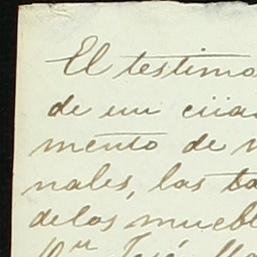 El testimo
de un cua
mento de
nales, las ta
de los muebl